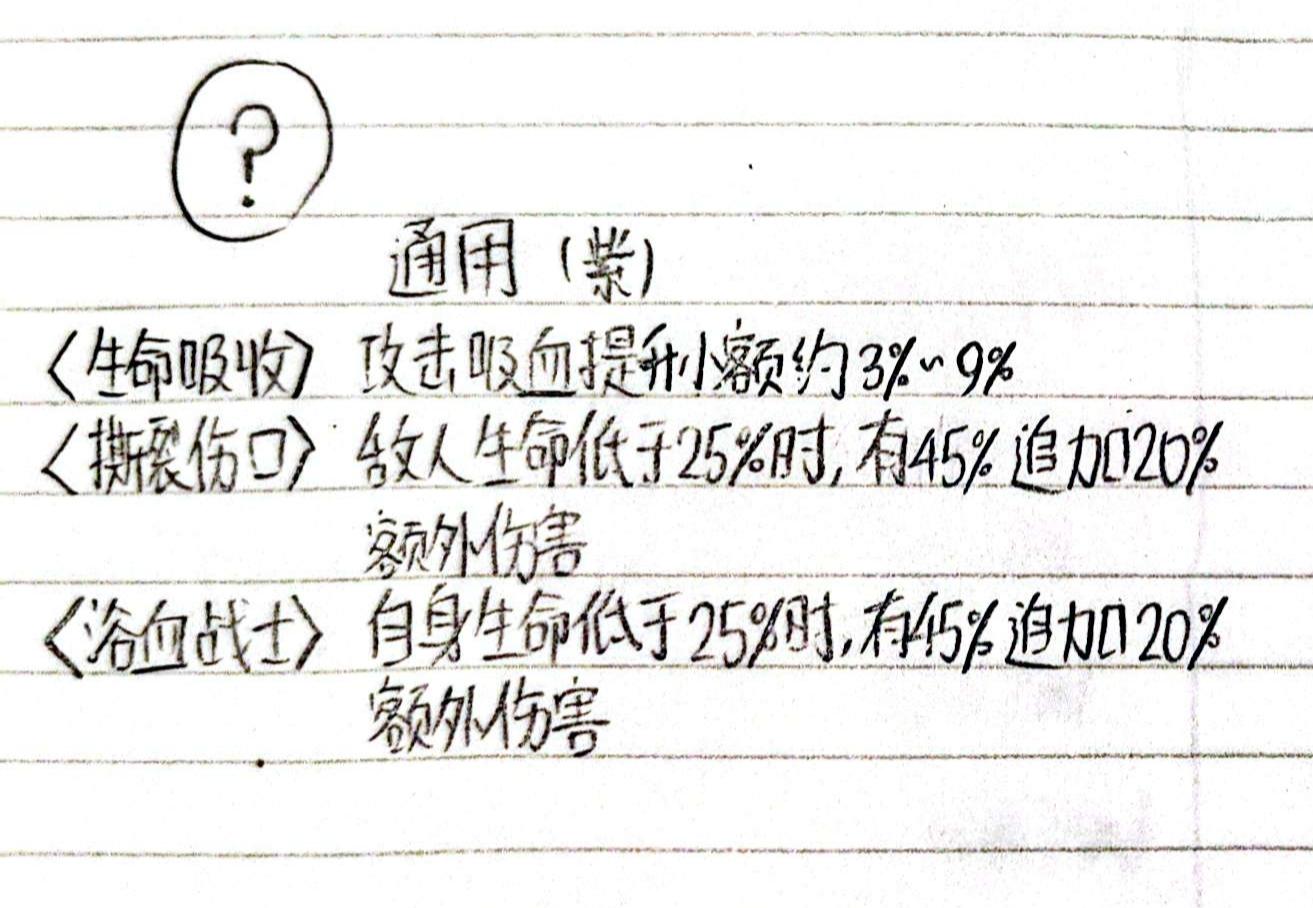 ?
通用（紫）
〈生命吸收〉 攻击吸血提升小额约3%~9%
〈撕裂伤口〉 敌人生命低于25%时,有45%追加20%
额外伤害
〈浴血战士〉 自身生命低于25%时,有45%追加20%
额外伤害